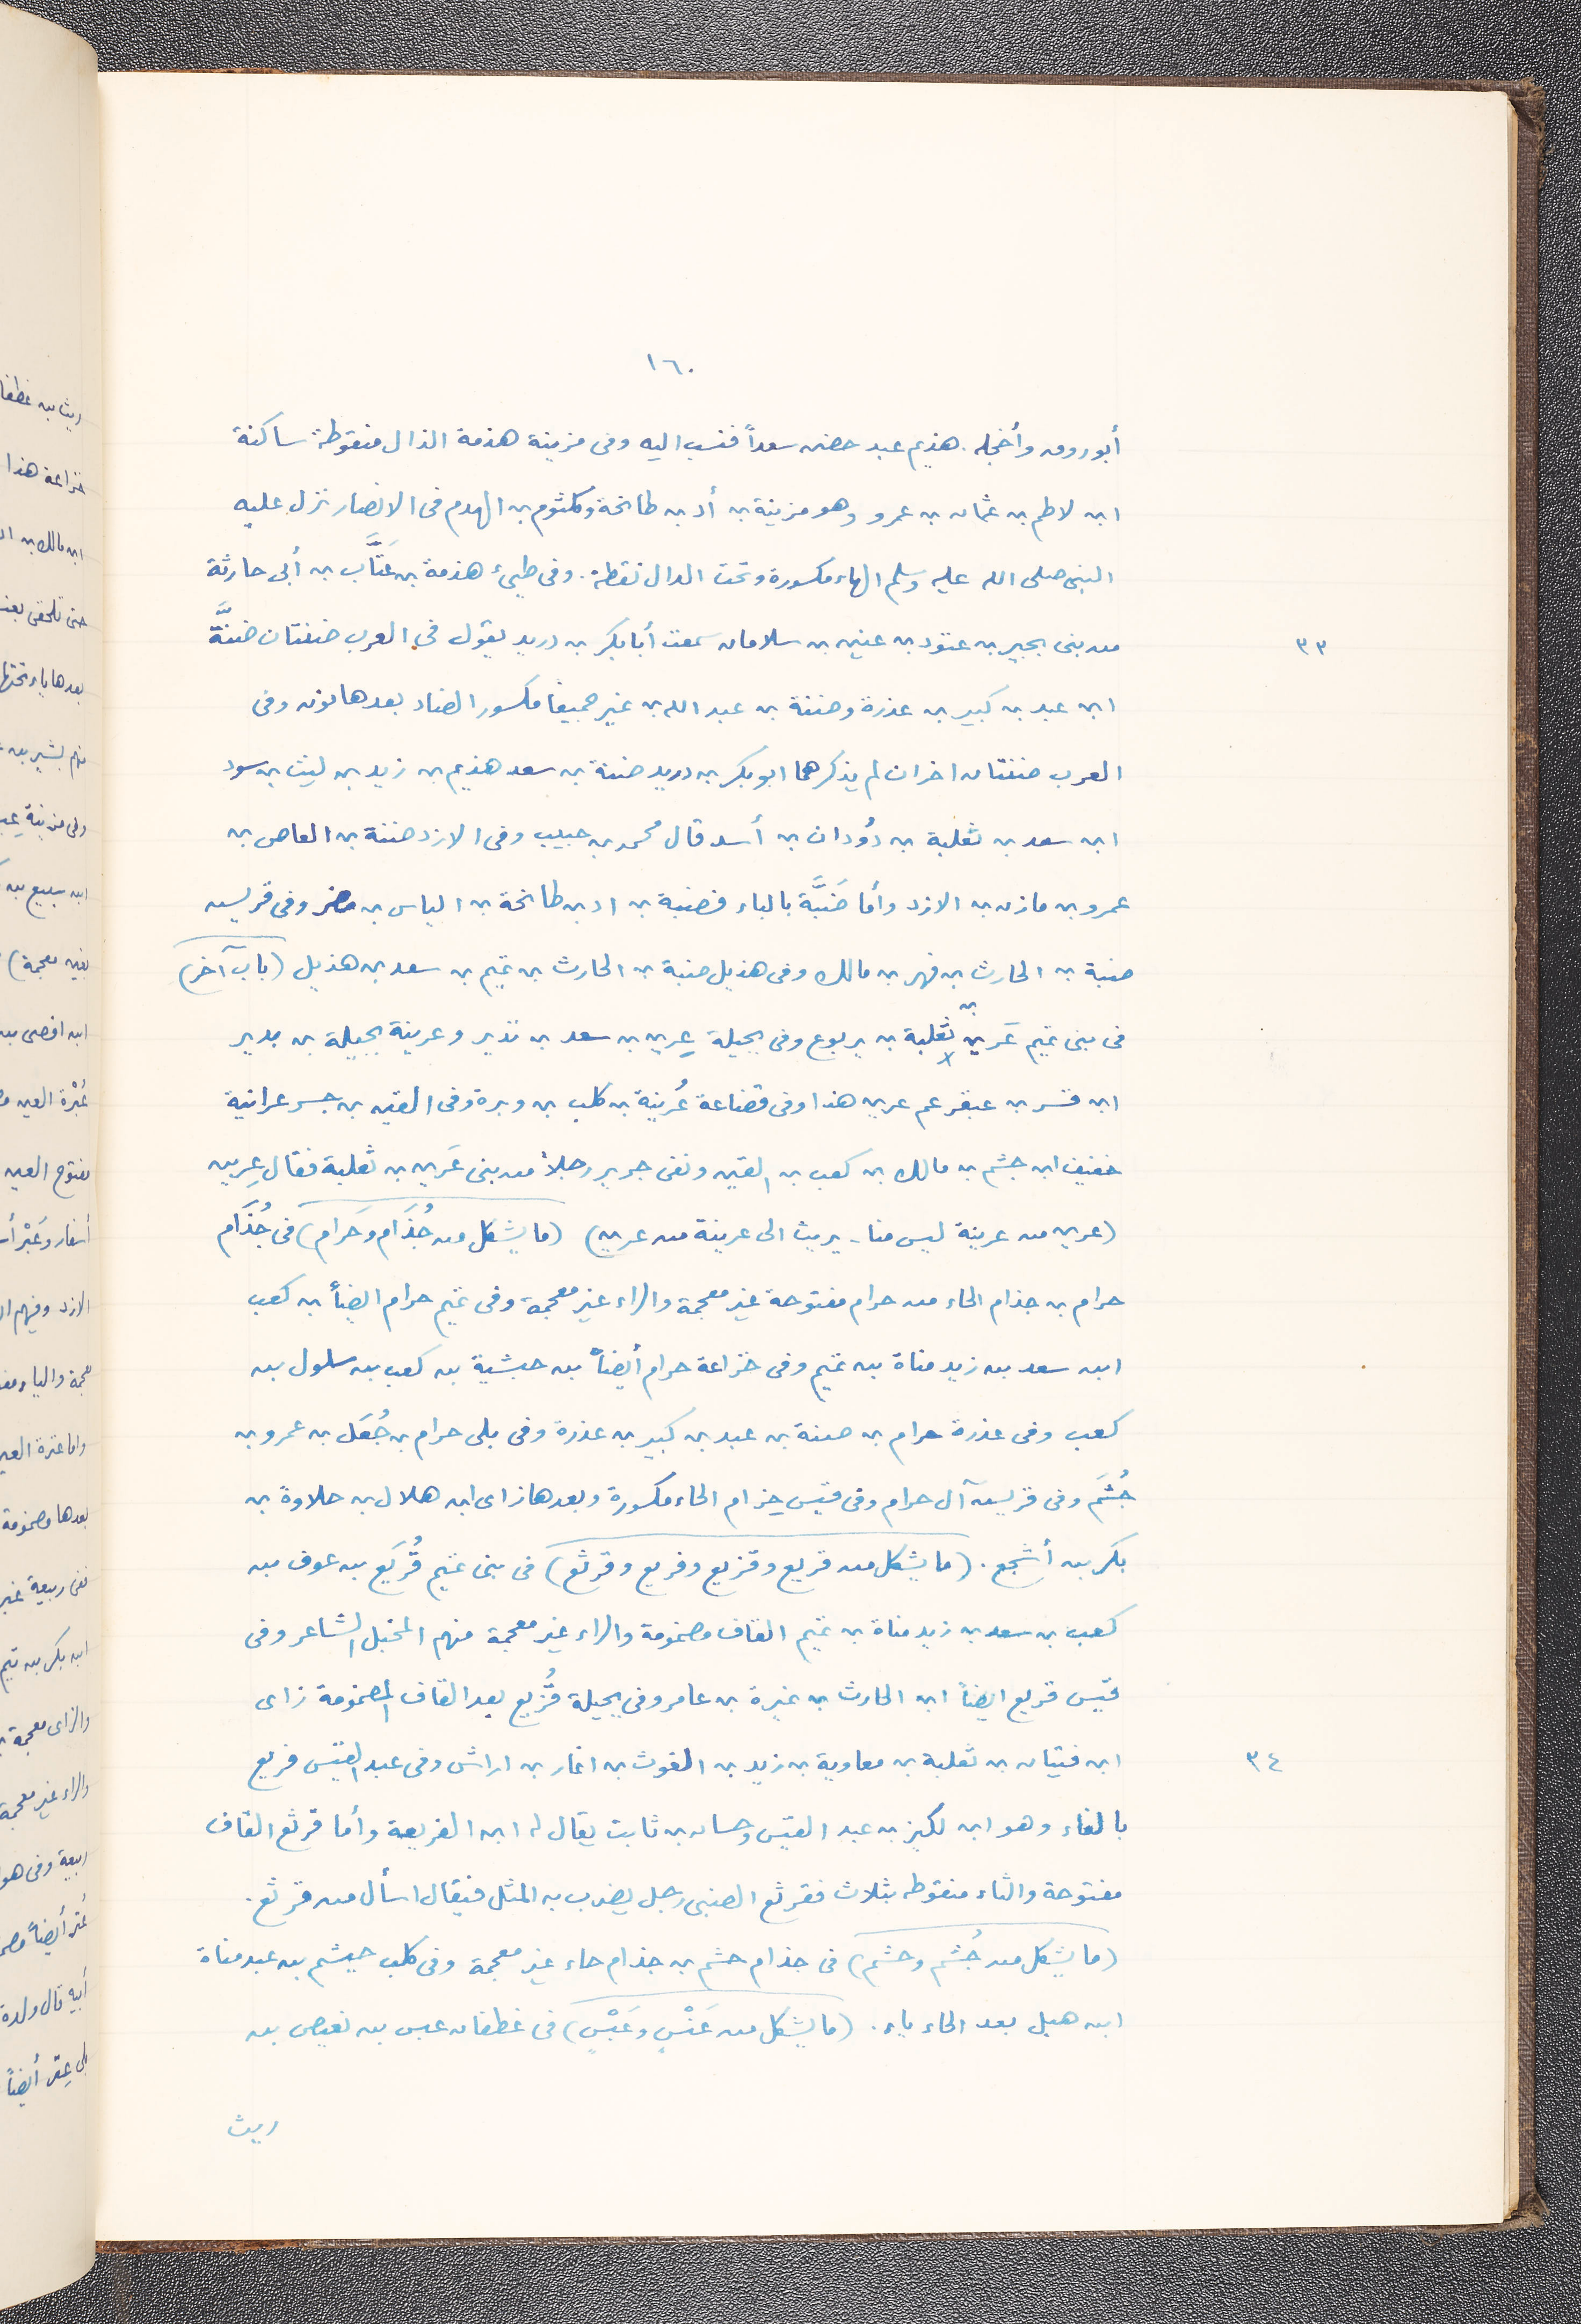 ١٦٠
أبوروق وأخجله. هذيم عبد حضن سعداً فنسب اليه وفى مزينة هذمة الذال منقوطة ساكنة
ابن لاطم بن عثمان بن عمرو وهو مزينة بن أد بن طابخة وكلثوم بن الهدم فى الانصار نزل عليه
النبى صلى الله عليه وسلم الهاء مكسورة وتحت الدال نقطة. وفى طيىء هذمة بن عَتَّاب بن أبى حارثة
٣٣
من بنى بحير بن عتود بن عنين بن سلامان سمعت أبا بكر بن دريد يقول فى العرب ضنتان ضنَّة
ابن عبد بن كبير بن عذرة وضنة بن عبد الله بن نمير جميعًا مكسور الضاد بعدها نون وفى
العرب ضنتان اخران لم يذكرهما ابو بكر بن دريد ضنة بن سعد هذيم بن زيد بن ليث بن سود
ابن سعد بن ثعلبة بن دُودان بن أسد قال محمد بن حبيب وفى الازد ضنة بن العاص بن
عمرو بن مازن بن الازد وأما ضَبَّة بالباء فضبة بن اد بن طابخة بن الياس بن مضر وفى قريش
ضبة بن الحارث بن فهر بن مالك وفى هذيل ضبة بن الحارث بن تميم بن سعد بن هذيل (باب آخر)
فى بنى تميم عَرين بن ثعلبة بن يربوع وفى بجيلة عرين بن سعد بن نذير وعرينة بجيلة بن بدير
ابن قسر بن عبقر عم عرين هذا وفى قضاعة عُرينة بن كلب بن وبرة وفى القين بن جسر عرانية
خفيف ابن جشم بن مالك بن كعب بن القين ونفى جرير رجلاً من بنى عَرين بن ثعلبة فقال عرين
(عرين من عرينة ليس منا - بريت الى عرينة من عرين) (ما يشكل من جُذَام وحَرام) فى جُذَام
حرام بن جذام الحاء من حرام مفتوحة غير معجمة والراء غير معجمة وفى تميم حرام ايضاً بن كعب
ابن سعد بن زيد مناة بن تميم وفى خزاعة حرام أيضاً بن حبشية بن كعب بن سلول بن
كعب وفى عذرة حرام بن ضنة بن عبد بن كبير بن عذرة وفى بلى حرام بن جُعَل بن عمرو بن
جُشَم وفى قريش آل حرام وفى قيس حِزام الحاء مكسورة وبعدها زاى ابن هلال بن خلاوة بن
بكر بن أشجع. (ما يشكل من قريع وقزيع وفريع وقرثع) فى بنى تميم قُرَيَع بن عوف بن
كعب بن سعد بن زيد مناة بن تميم القاف مضمومة والراء غير معجمة منهم المخبل الشاعر وفى
قيس قريع ايضاً ابن الحارث بن نميرة بن عامر وفى بجيلة قُزيع بعد القاف المضمومة زاى
٣٤
ابن فتيان بن ثعلبة بن معاوية بن زيد بن الغوث بن انمار بن اراش وفى عبد القيس فريع
بالفاء وهو ابن لكيز بن عبد القيس وحسان بن ثابت يقال له ابن الفريعة وأما قرثع القاف
مفتوحة والثاء منقوطه بثلاث فقرثع الضبى رجل يضرب به المثل فيقال اسأل من قرثع.
(ما يشكل من جُشم وحشم) فى جذام حشم بن جذام حاء غير معجمة وفى كلب حيشم بن عبد مناة
ابن هبل بعد الحاء ياء. (ما يشكل من عَنْسٍ وعَبْسٍ) فى غطفان عبس بن بغيض بن
ريث